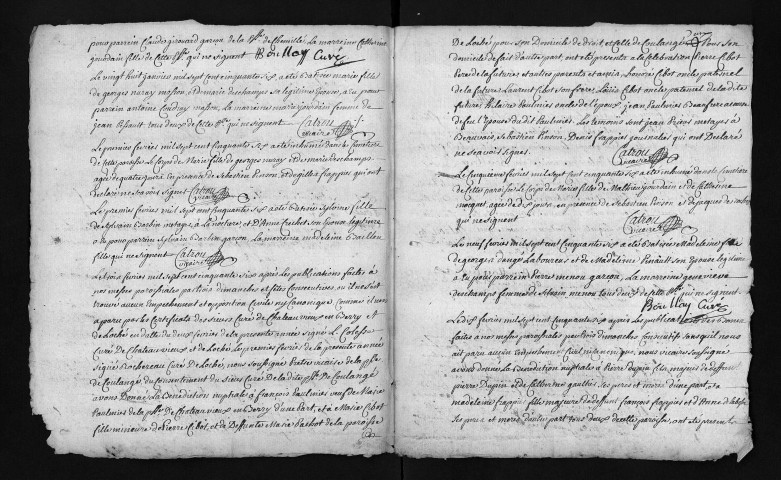 pour parrein Claude girouard garçon de la psse de Chemillé La marreinne Catherine
gaudain fille de cette psse qui ne signent Boullay Curé
Le vingt huit janvier mil sept cent cinquante six a été Batisée marie fille
de georges naray masson, et de marie deschamps, sa legitime Epouse, a eu pour
parrain antoine Coudray masson, La marreinne marie jourdain femme de
jean Pesault tous deux de Cette psse qui ne signent. Catrou
vicaire
Le premier fevrier mil sept cent cinquante six a été inhumée dans le Cimetiere
de cette paroisse le Corps de Marie fille de georges naray et de marie deschamps
agée de quatre jours en presence de Sebastien Rocson et de gilles frappier qui ont
declaré ne sçavoir signer Catrou
vicaire
Le premier fevrier mil sept cent cinquante six a été Batisée Sylvine fille
de Sylvain Barbin metayer à la and d'Anne Cuchet son Epouse legitime
a eu pour parrain Sylvain Barbin garçon, La marreinne madelaine Baillou
fille qui ne signent Catrou
vicaire
Le trois fevrier mil sept cent cinquante six après les publications faites à
nos messes paroissiales par trois dimanches et fêtes Consecutives ou il ne s'est
trouvé aucun Empechement et opposition Civile ny Canonique Comme il nous
a paru par les Certificats des Sieurs Curé de Chateauvieux en Berry et
de Loché en datte du deux fevrier de la presente année signé
Curé de Chateauvieux et de Loché le premier fevrier de la presente année
signé Rochereau Curé De Loché, nous soussigné Pretre vicaire de la psse
de Coulangé du Consentement du Sieur Curé De la dite psse De Coulangé
avons Donné La Benediction nuptiale à françois Paulmier veuf de Marie
Paulmier de la psse de Chateauvieux en Berry d'une part, et à Marie Cibot
fille mineure de Pierre Cibot, et de Deffunte Marie Bachot de la paroisse
De Loché pour son Domicile de droit et celle de Coulangé pour son
domicile de fait d'autre part, ont été presents à la celebration Pierre Cibot
Pere de la future et autres parents et amis, Cibot oncle paternel
de la future Laurent Cibot son frere, Louis Cibot oncle paternel de la dite
future Hilaire Paulmier oncle de l'epoux, jean Paulmier Beaufrere a cause
de feue l'epouse du dit Paulmier. Les temoins sont jean Pinot metayer à
Beauvais, Sebastien Rocson, Denis frappier journalier qui ont Declaré
ne sçavoir signer. Catrou
vicaire
Le cinquieme fevrier mil sept cent cinquante six a été inhumé dans le Cimetiere
de cette paroisse le Corps de Marie fille de Mathieu jourdain et de Catherine
moquet, agée de six jours, en presence de Sebastien Rocson et de jacques
qui ne signent Catrou
vicaire
Le neuf fevrier mil sept cent Cinquante six a été Batisée Madelaine fille
de georges dangé Laboureur et de Madelaine Perault son Epouse legitime
a eu pour parrein Pierre menou garçon, La marreinne genevieve
deschamps femme de Martin menou tous deux de cette psse qui ne signent.
Boullay Curé
Le dix fevrier mil sept cent cinquante six après les publications des Bannes
faites à nos messes paroissiales par trois dimanches consecutifs sans qu'il nous
ait paru aucun empechement Civil ny Canonique, nous vicaire soussigné
avons donné la Benediction nuptiale à Pierre Dupin fils majeur de deffunt
Pierre Dupin et de Catherine gaultier, ses pere et mere d'une part, et a
madelaine frappier fille majeure de deffunt françois frappier et d'Anne
ses pere et mere d'autre part tous deux de cette paroisse, ont été presents